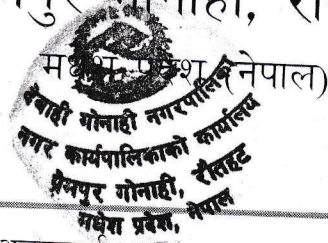 गोनाही, रौ
मधेश प्रदेश, (नेपाल)
देवाही गोनाही नगरपालिका
नगर कार्यपालिकाको कार्यालय
प्रेमपुर गोनाही, रौतहट
मधेश प्रदेश, नेपाल